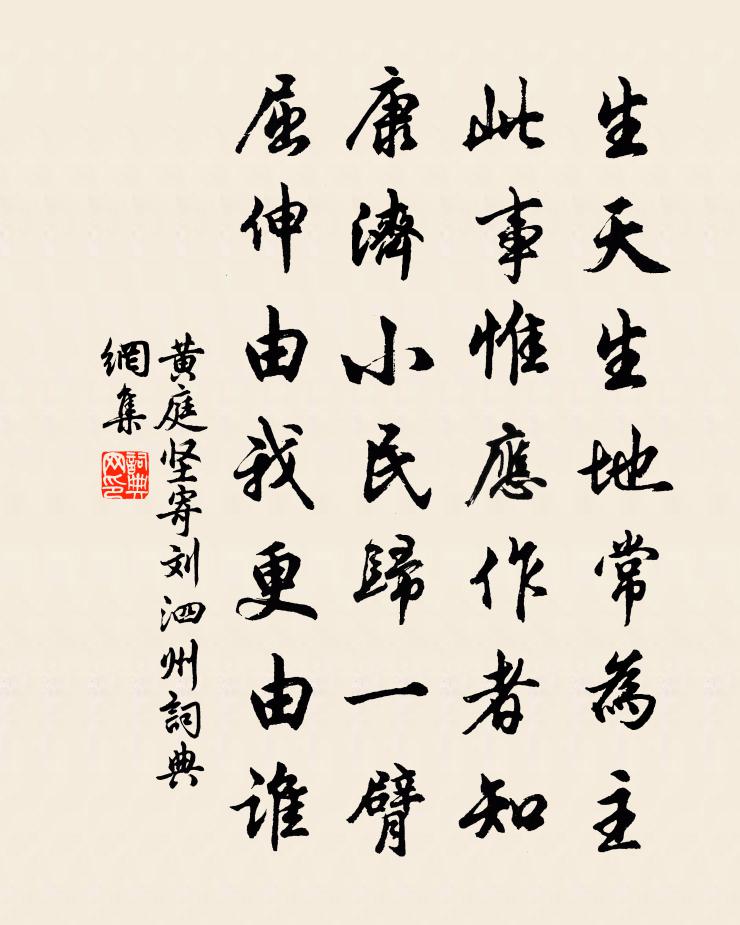 生天生地常為主
此事惟應作者知
康濟小民歸一臂
屈伸由我更由誰
黄庭坚寄刘泗州詞典
網集
詞典
网印